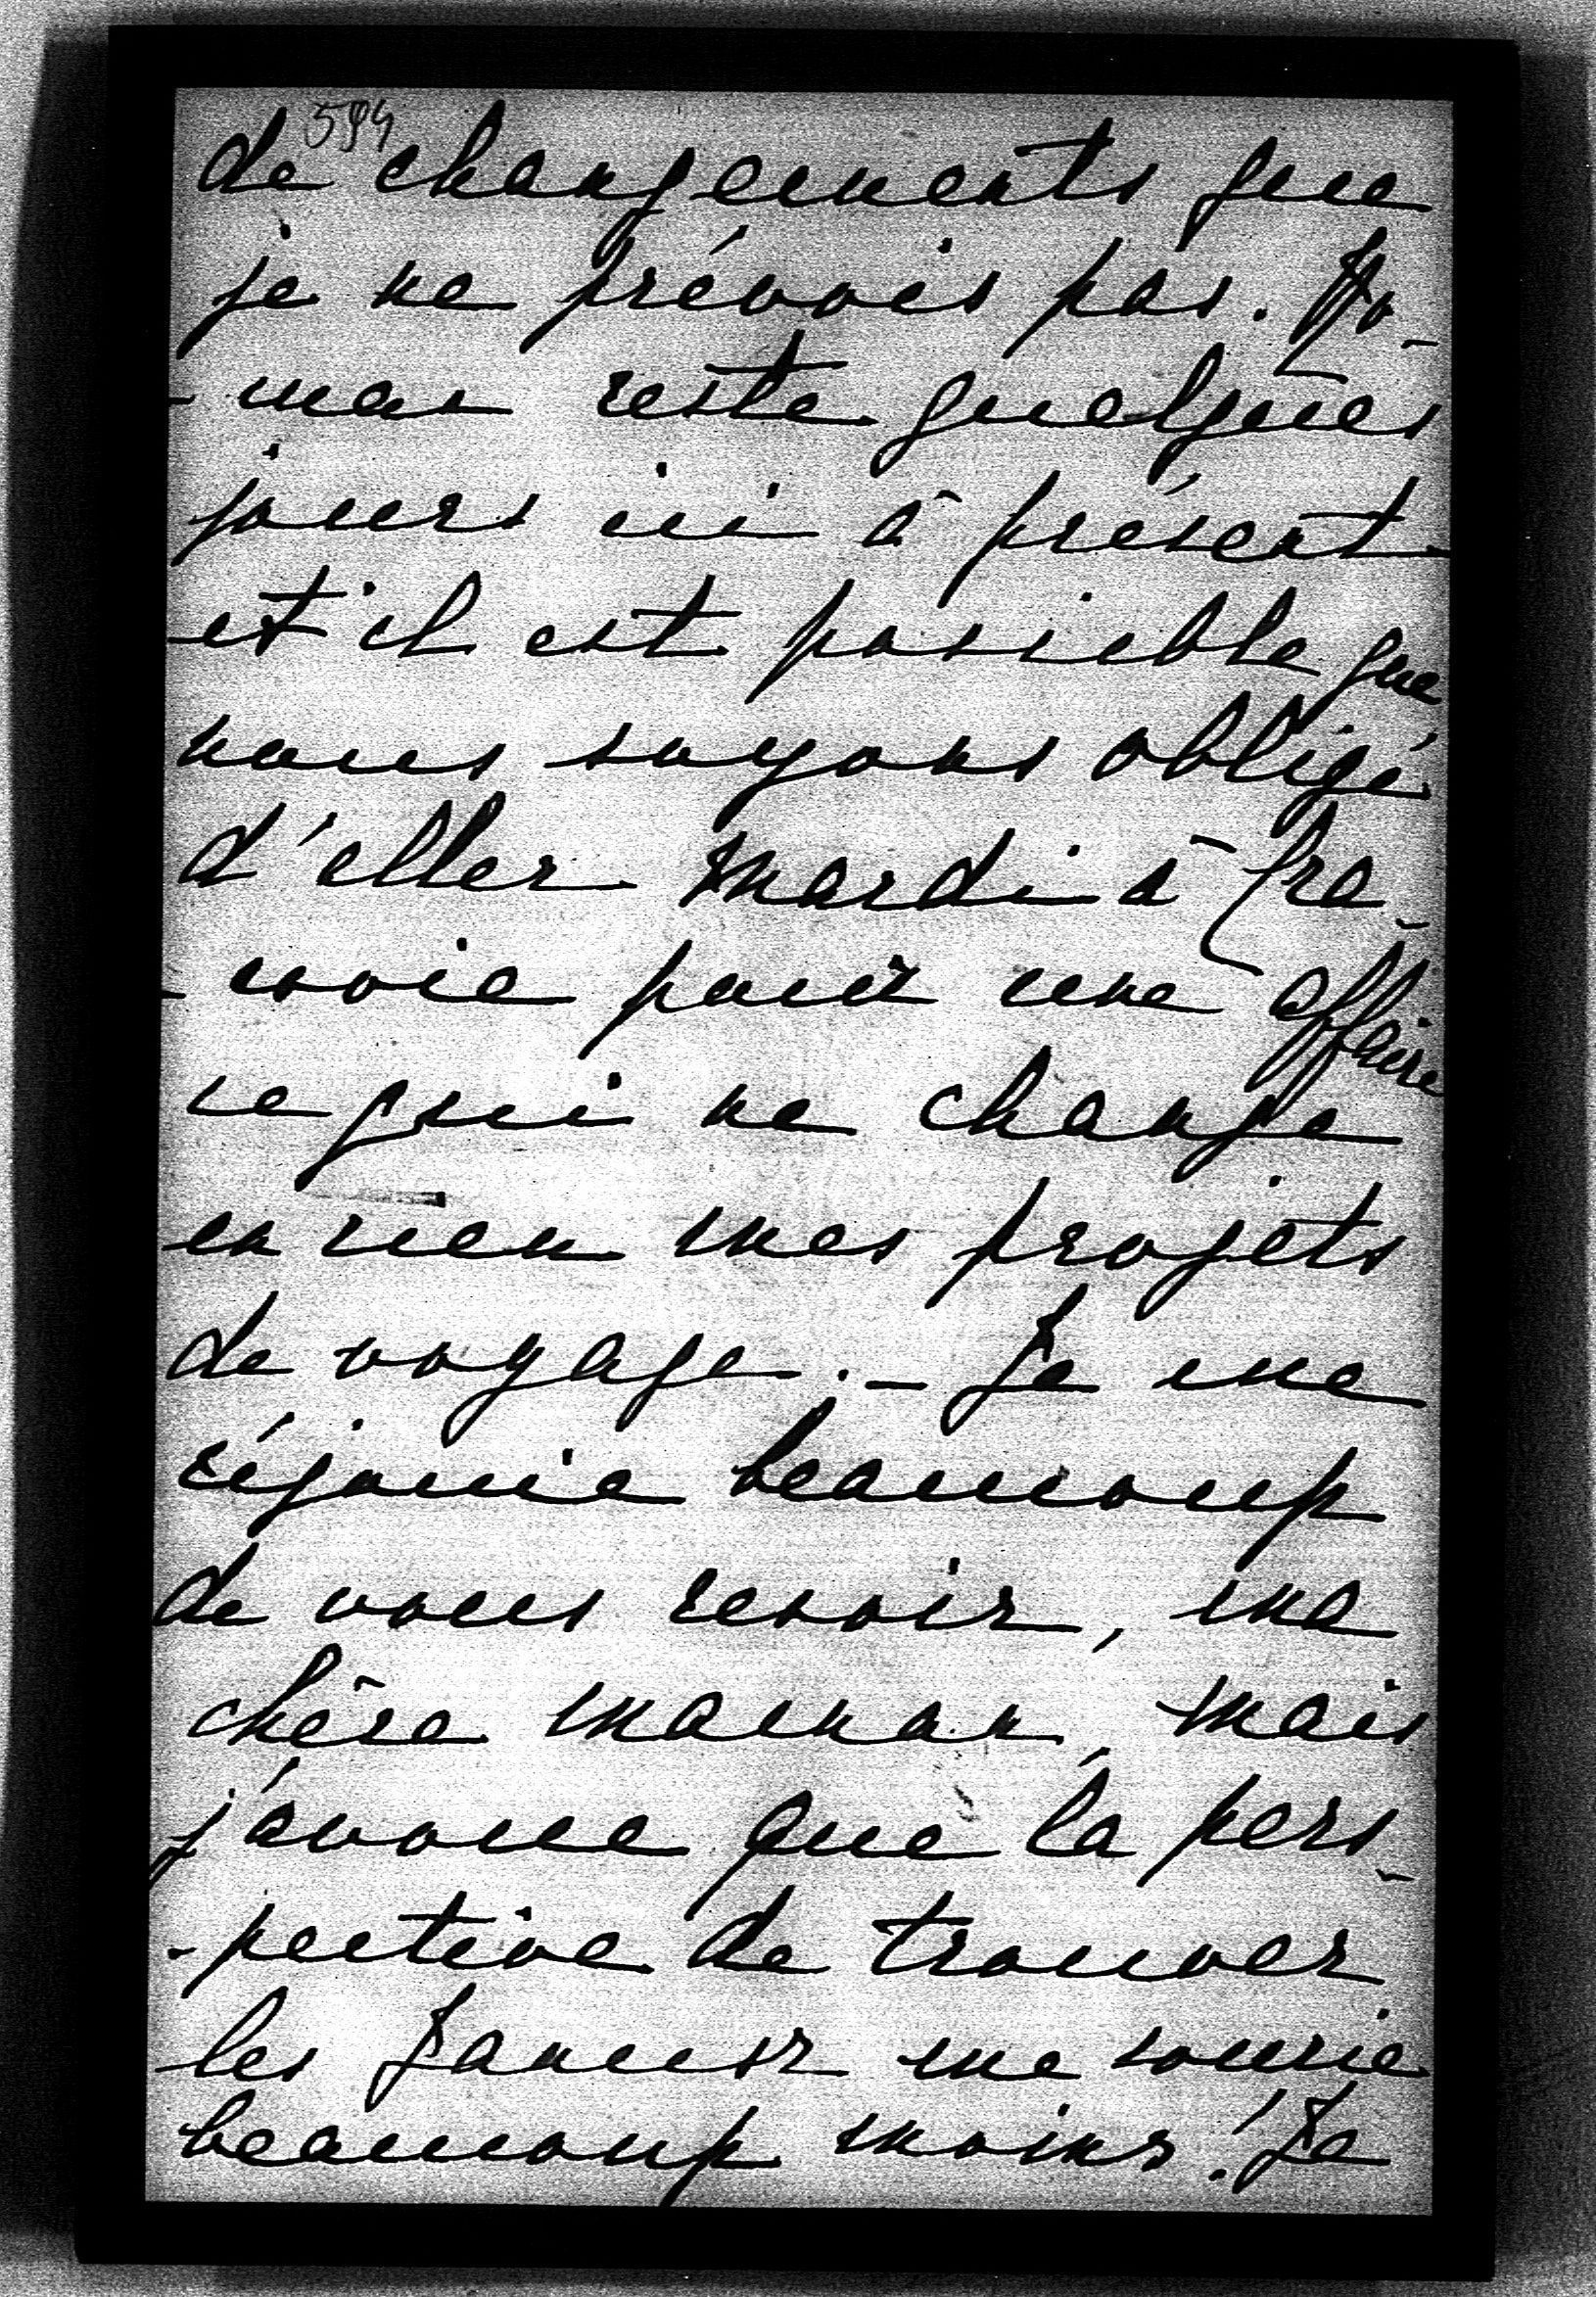 594
de changements que
je ne prévois pas. Ro-
-man reste quelques
jours ici à présent
et il est possible que
nous soyons obligé
d'aller Mardi à Cra-
-covie pour une affaire
ce qui ne change
en rien mes projets
de voyage. _ Je me
réjouie beaucoup
de vous revoir, ma
chère maman, mais
j'avoue que la pers-
-pective de trouver
les Janusz me sourie
beaucoup moins! Je